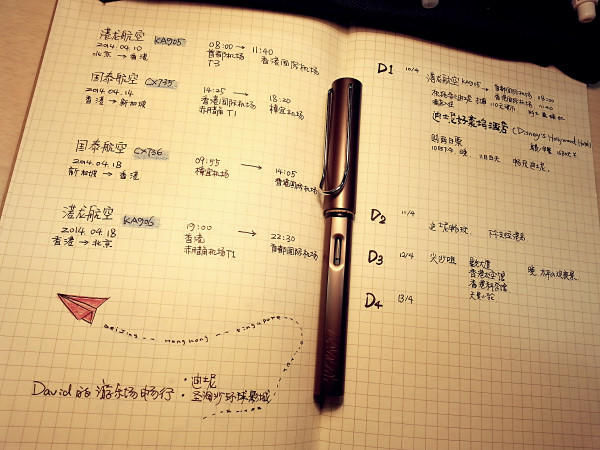 港龙航空 KA905
2014.04.10
北京 → 香港
08:00 → 11:40
首都机场 香港国际机场
T3
国泰航空 CX735
2014.04.14
香港 → 新加坡
14:25 → 18:20
香港国际机场 樟宜机场
赤鱲角 T1
国泰航空 CX736
2014.04.18
新加坡 → 香港
09:55 → 14:05
樟宜机场 香港国际机场
港龙航空 KA906
2014.04.18
香港 → 北京
19:00 → 22:30
香港 首都国际机场
赤鱲角机场T1
beijing
HongKong
singapore
David的游乐场畅行
· 迪士尼
· 圣淘沙环球影城
D1 10/4
港龙航空 KA905 → 首都国际机场 08:00
香港国际机场 11:40
迪士尼好莱坞酒店 (Disney's Hollywood Hotel)
D2 11/4
迪士尼畅玩
D3 12/4
尖沙咀 星光大道
香港太空馆
香港科学馆
天星小轮
晚
D4 13/4